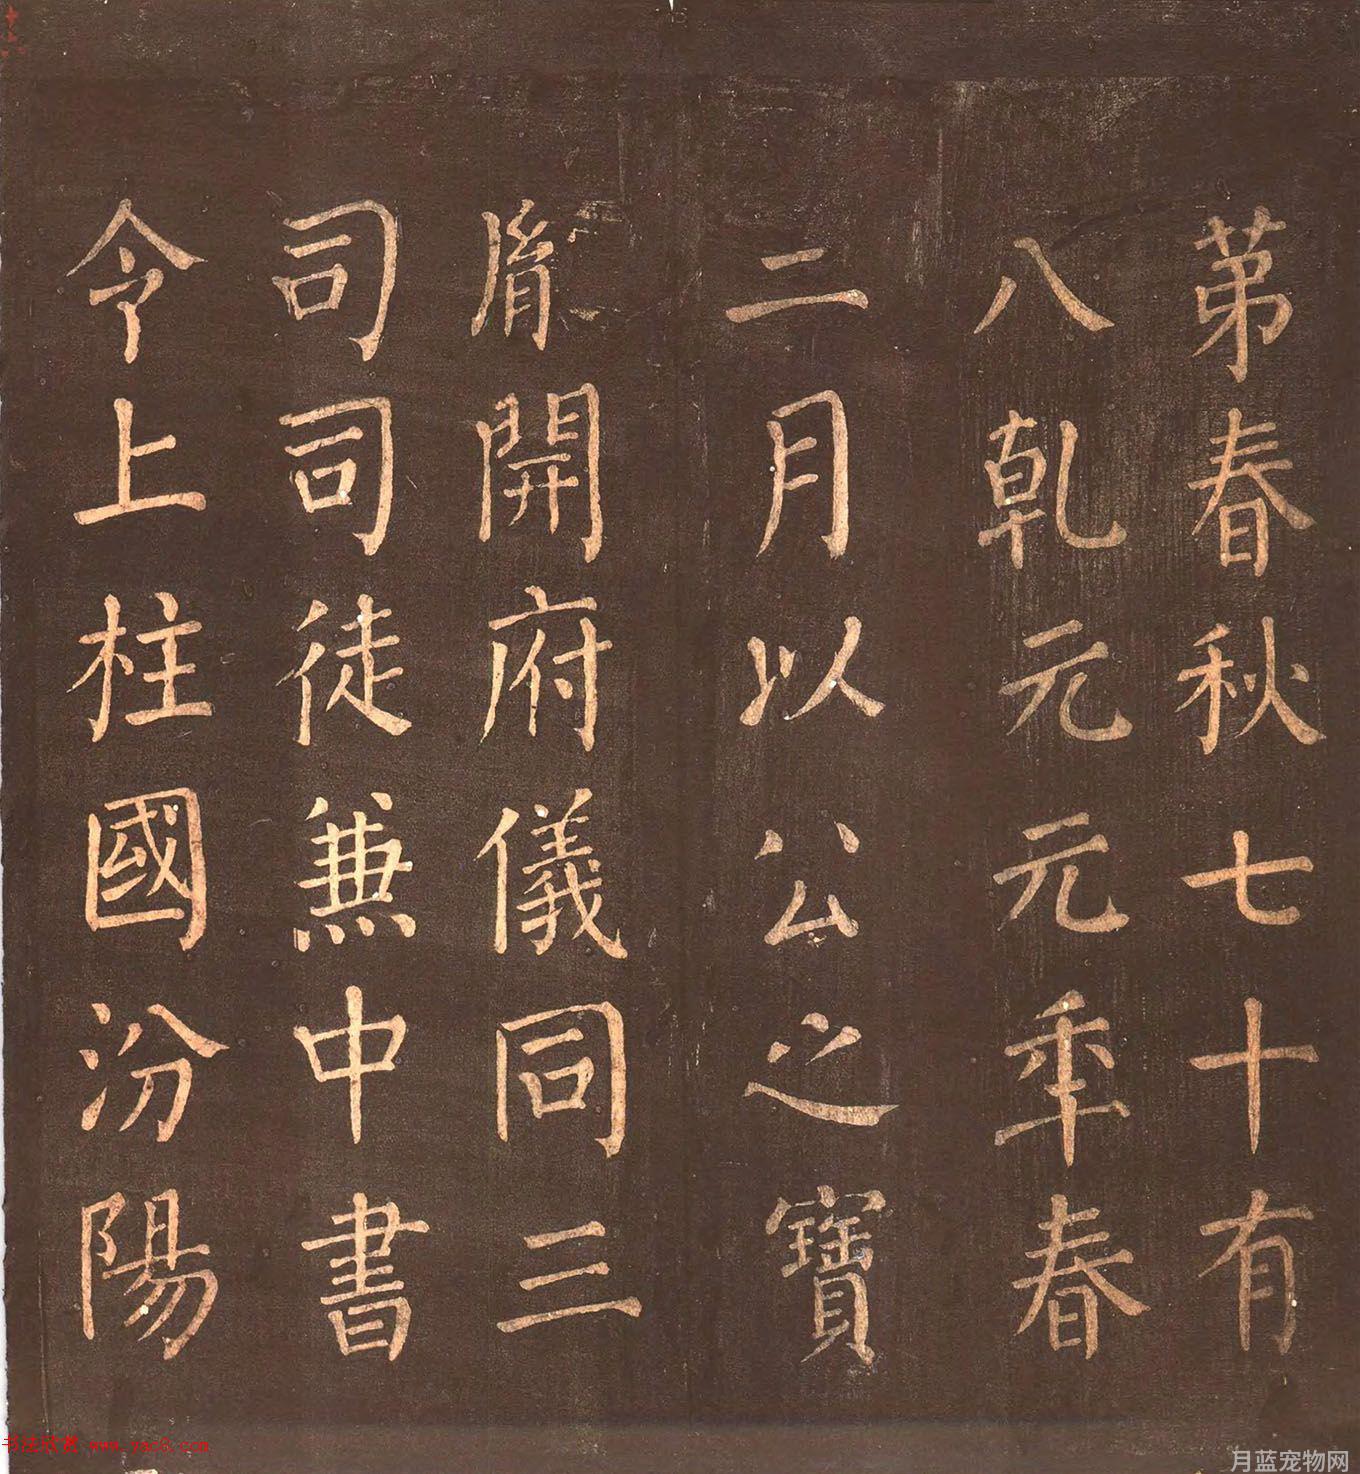 苐春秋七十有
八乾元元年春
二月以公之寶
胤開府儀同三
司司徒兼中書
令上柱國汾陽
书法欣赏 www.yac8.com
月蓝宠物网